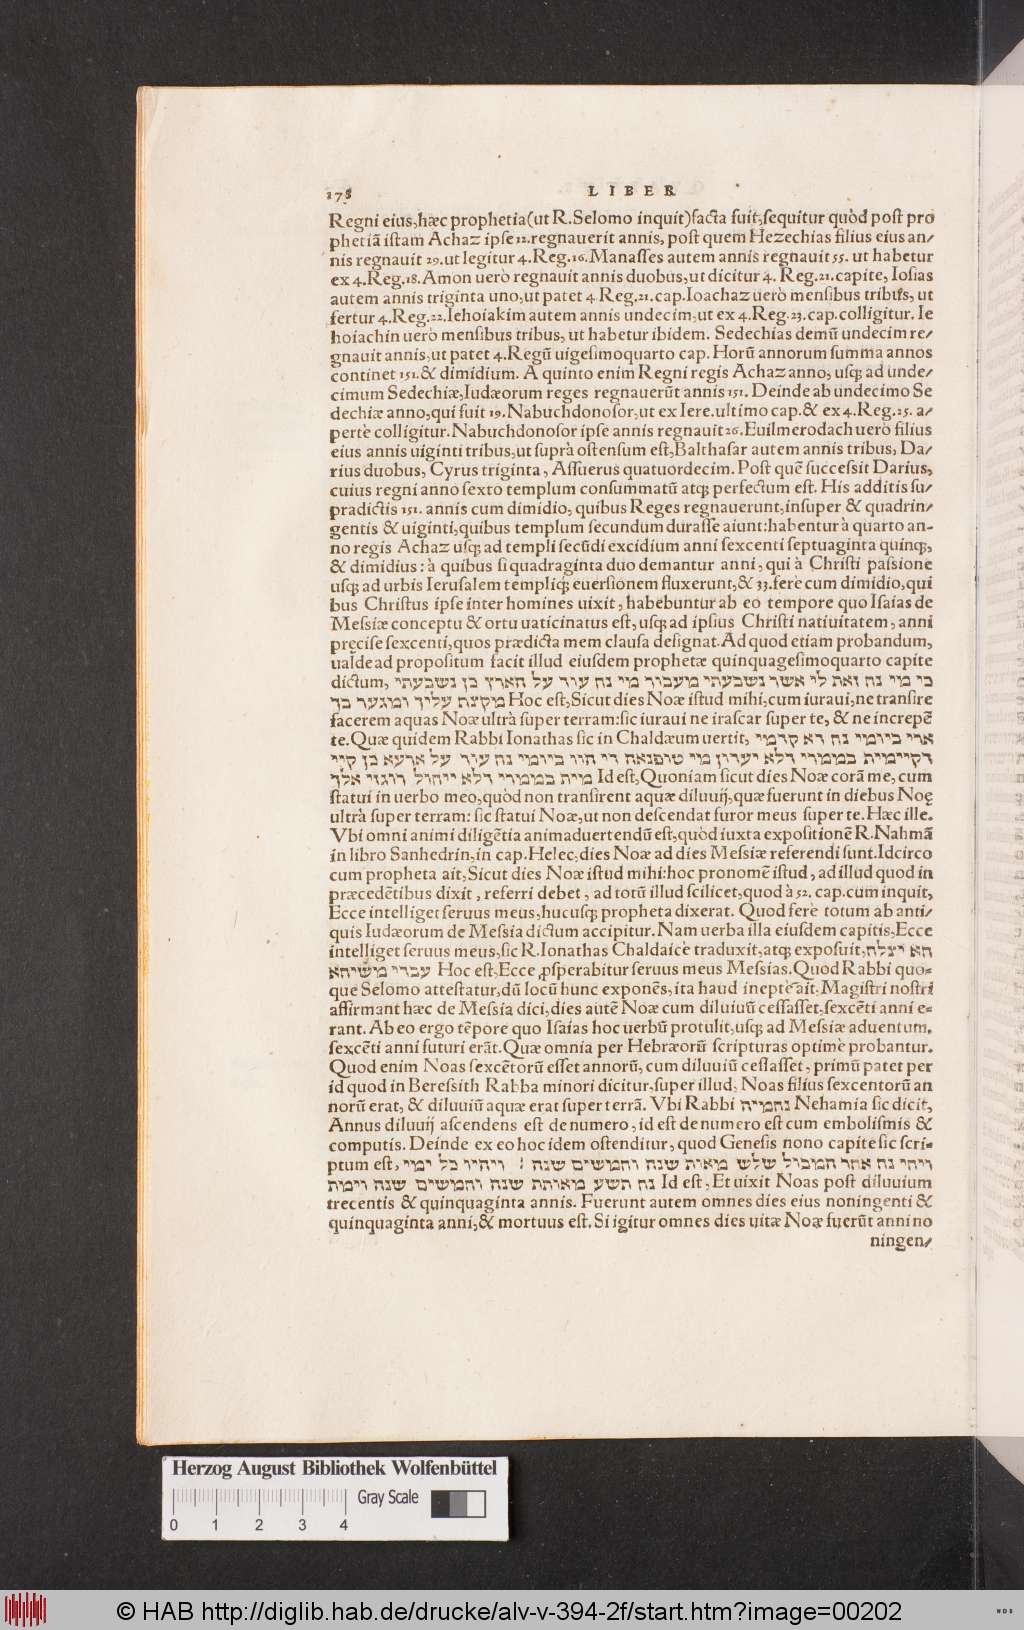 178 LIBER
Regni eius, hæc prophetia (ut R. Selomo inquit) facta fuit, sequitur quòd post pro
phetiã istam Achaz ipse 12. regnauerit annis, post quem Hezechias filius eius an/
nis regnauit 29. ut legitur 4. Reg. 16. Manasses autem annis regnauit 55. ut habetur
ex 4. Reg. 18. Amon uerò regnauit annis duobus, ut dicitur 4. Reg. 21. capite, Iosias
autem annis triginta uno, ut patet 4 Reg. 21. cap. Ioachaz uerò mensibus tribus, ut
fertur 4. Reg. 22. Iehoiakim autem annis undecim, ut ex 4. Reg. 23. cap. colligitur. Ie
hoiachin uerò mensibus tribus, ut habetur ibidem. Sedechias demũ undecim re/
gnauit annis, ut patet 4. Regũ uigesimoquarto cap. Horũ annorum summa annos
continet 151. & dimidium. A quinto enim Regni regis Achaz anno, usq; ad unde/
cimum Sedechiæ, Iudæorum reges regnauerũt annis 151. Deinde ab undecimo Se
dechiæ anno, qui fuit 19. Nabuchdonosor, ut ex Iere. ultimo cap. & ex 4. Reg. 25. a/
pertè colligitur. Nabuchdonosor ipse annis regnauit 26. Euilmerodach uerò filius
eius annis uiginti tribus, ut suprà ostensum est, Balthasar autem annis tribus, Da/
rius duobus, Cyrus triginta, Assuerus quatuordecim. Post quẽ successit Darius,
cuius regni anno sexto templum consummatũ atq; perfectum est. His additis su/
pradictis 151. annis cum dimidio, quibus Reges regnauerunt, insuper & quadrin/
gentis & uiginti, quibus templum secundum durasse aiunt: habentur à quarto an-
no regis Achaz usq; ad templi secũdi excidium anni sexcenti septuaginta quinq;,
& dimidius: à quibus si quadraginta duo demantur anni, qui à Christi passione
usq; ad urbis Ierusalem templiq; euersionem fluxerunt, & 33. ferè cum dimidio, qui
bus Christus ipse inter homines uixit, habebuntur ab eo tempore quo Isaias de
Messiæ conceptu & ortu uaticinatus est, usq; ad ipsius Christi natiuitatem, anni
pręcise sexcenti, quos prædicta mem clausa designat. Ad quod etiam probandum,
ualde ad propositum facit illud eiusdem prophetæ quinquagesimoquarto capite
dictum, כי מי נח זאת לי אשר נשבעתי מעבור מי נח עוד על הארץ כן נשבעתי
מקצת עליך ומגער בך Hoc est, Sicut dies Noæ istud mihi, cum iuraui, ne transire
facerem aquas Noæ ultrà super terram: sic iuraui ne irascar super te, & ne increpẽ
te. Quæ quidem Rabbi Ionathas sic in Chaldæum uertit, ארי ביומי נח דא קדמי
דקיימית במימרי דלא יעדון מי טופנאה די הוו ביומי נח עוד על ארעא כן קיי
מית במימרי דלא ייחול רוגזי אלך Id est, Quoniam sicut dies Noæ corã me, cum
statui in uerbo meo, quòd non transirent aquæ diluuij, quæ fuerunt in diebus Noę
ultrà super terram: sic statui Noæ, ut non descendat furor meus super te. Hæc ille.
Vbi omni animi diligẽtia animaduertendũ est, quòd iuxta expositionẽ R. Nahmã
in libro Sanhedrin, in cap. Helec, dies Noæ ad dies Messiæ referendi sunt. Idcirco
cum propheta ait, Sicut dies Noæ istud mihi: hoc pronomẽ istud, ad illud quod in
præcedẽtibus dixit, referri debet, ad totũ illud scilicet, quod à 52. cap. cum inquit,
Ecce intelliget seruus meus, hucusq; propheta dixerat. Quod ferè totum ab anti/
quis Iudæorum de Messia dictum accipitur. Nam uerba illa eiusdem capitis, Ecce
intelliget seruus meus, sic R. Ionathas Chaldaicè traduxit, atq; exposuit, הא יצלח
עבדי משיחא Hoc est, Ecce ꝓsperabitur seruus meus Messias. Quod Rabbi quo-
que Selomo attestatur, dũ locũ hunc exponẽs, ita haud ineptè ait. Magistri nostri
affirmant hæc de Messia dici, dies autẽ Noæ cum diluuiũ cessasset, sexcẽti anni e-
rant. Ab eo ergo tẽpore quo Isaias hoc uerbũ protulit, usq; ad Messiæ aduentum,
sexcẽti anni futuri erãt. Quæ omnia per Hebræorũ scripturas optimè probantur.
Quod enim Noas sexcẽtorũ esset annorũ, cum diluuiũ cessasset, primũ patet per
id quod in Beressith Rabba minori dicitur, super illud, Noas filius sexcentorũ an
norũ erat, & diluuiũ aquæ erat super terrã. Vbi Rabbi נחמיה Nehamia sic dicit,
Annus diluuij ascendens est de numero, id est de numero est cum embolismis &
computis. Deinde ex eo hoc idem ostenditur, quod Genesis nono capite sic scri-
ptum est, ויחי נח אחר המבול שלש מאות שנה וחמושים שנה : ויהיו כל ימי
נח תשע מאותת שנה וחמושים שנה וימות Id est, Et uixit Noas post diluuium
trecentis & quinquaginta annis. Fuerunt autem omnes dies eius noningenti &
quinquaginta anni, & mortuus est. Si igitur omnes dies uitæ Noæ fuerũt anni no
ningen/
Herzog August Bibliothek Wolfenbüttel
Gray Scale
0 1 2 3 4
© HAB http://diglib.hab.de/drucke/alv-v-394-2f/start.htm?image=00202